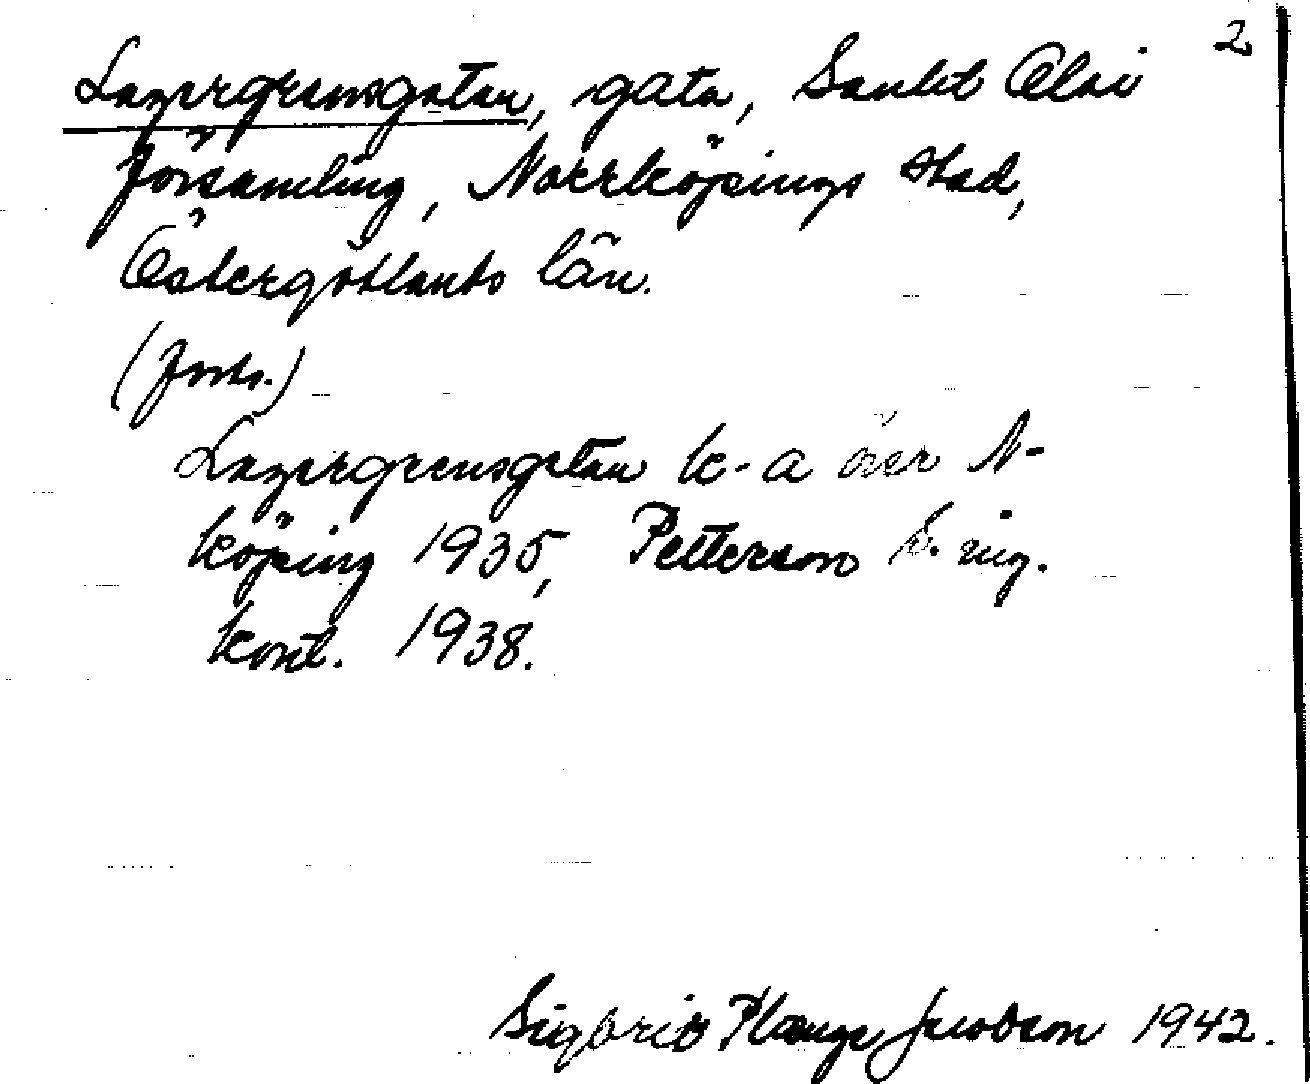 2
Lagergrensgatan, gata, Sankt Olai
församling, Norrköpings stad,
Östergötlands län.
(forts.)
Lagergrensgatan k-a över N-
köping 1935, Petterson b. ing.
kont. 1938.
Sigbrit Plænge Jacobson 1942.